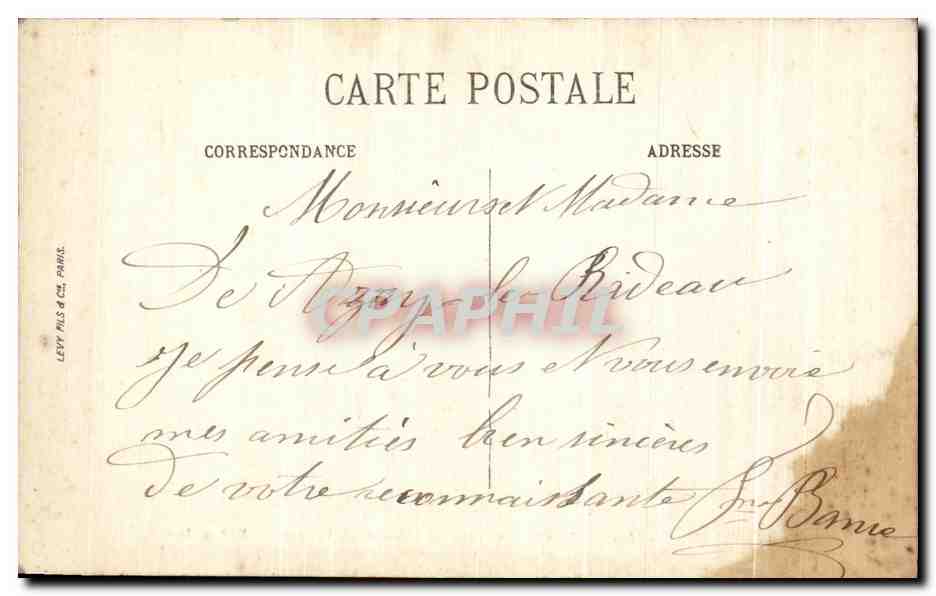 CARTE POSTALE
CORRESPONDANCE
ADRESSE
LEVY FILS & Cie, PARIS.
Monsieur et Madame
De Azay-le-Rideau
Je pense à vous et vous envoie
mes amitiés bien sincères
de votre reconnaissante
CPAPHIL